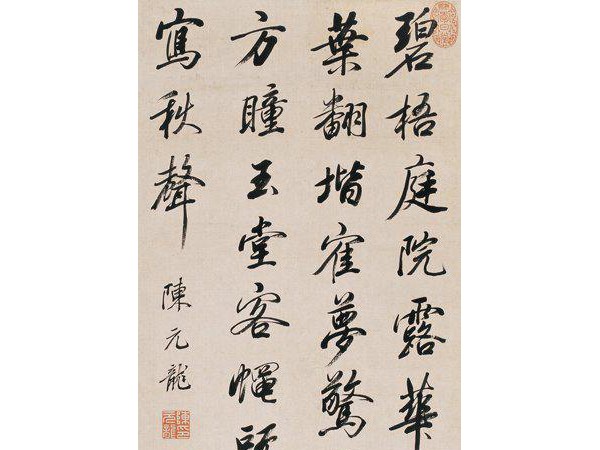 碧梧庭院露華
葉翻堦隺夢驚
方瞳玉堂客蠅
寫秋聲
陳元龍